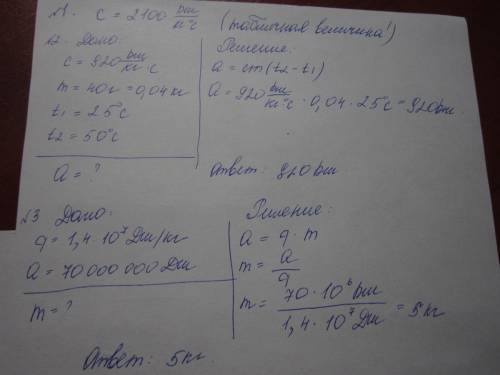 №1. c = 2100 Дж/кг°С (табличная величина!)
№2. Дано:
c = 920 Дж/кг°С
m = 40г = 0,04 кг
t1 = 25°С
t2 = 50°С
Q = ?
Решение:
Q = cm(t2 - t1)
Q = 920 Дж/кг°С · 0,04 · 25°С = 920 Дж.
Ответ: 920 Дж
№3 Дано:
q = 1,4 · 10⁷ Дж/кг
Q = 70 000 000 Дж
m = ?
Решение:
Q = q · m
m = Q/q
m = 70 · 10⁶ Дж / 1,4 · 10⁷ Дж = 5 кг
Ответ: 5 кг.